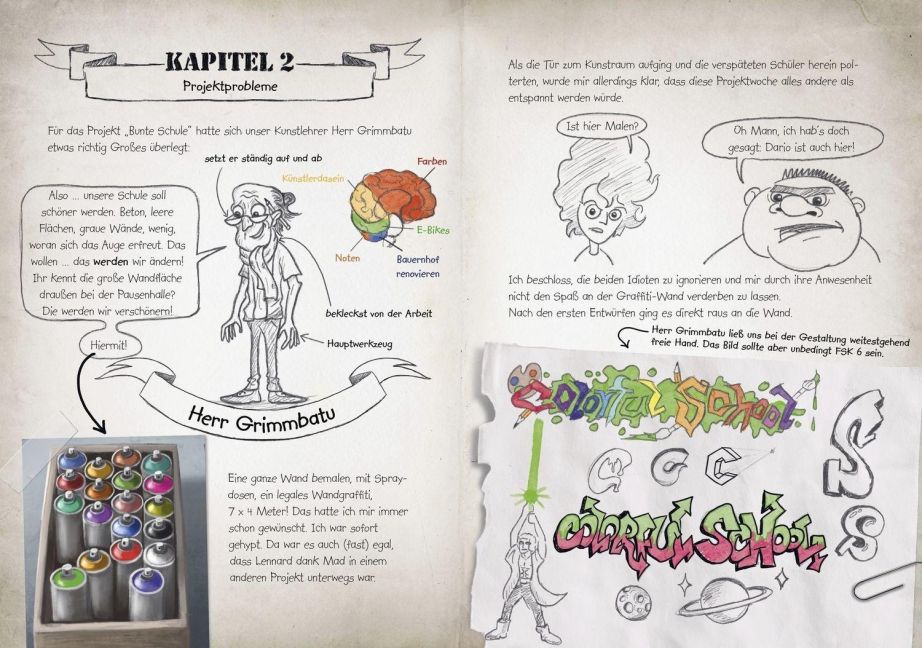 KAPITEL 2
Projektprobleme
Für das Projekt „Bunte Schule" hatte sich unser Kunstlehrer Herr Grimmbatu
etwas richtig Großes überlegt:
setzt er ständig auf und ab
Künstlerdasein
Farben
E-Bikes
Noten
Bauernhof
renovieren
Also ... unsere Schule soll
schöner werden. Beton, leere
Flächen, graue Wände, wenig,
woran sich das Auge erfreut. Das
wollen ... das werden wir ändern!
Ihr kennt die große Wandfläche
draußen bei der Pausenhalle?
Die werden wir verschönern!
Hiermit!
bekleckst von der Arbeit
Hauptwerkzeug
Herr Grimmbatu
Eine ganze Wand bemalen, mit Spray-
dosen, ein legales Wandgraffiti,
7 x 4 Meter! Das hatte ich mir immer
schon gewünscht. Ich war sofort
gehypt. Da war es auch (fast) egal,
dass Lennard dank Mad in einem
anderen Projekt unterwegs war.
Als die Tür zum Kunstraum aufging und die verspäteten Schüler herein pol-
terten, wurde mir allerdings klar, dass diese Projektwoche alles andere als
entspannt werden würde.
Ist hier Malen?
Oh Mann, ich hab's doch
gesagt: Dario ist auch hier!
Ich beschloss, die beiden Idioten zu ignorieren und mir durch ihre Anwesenheit
nicht den Spaß an der Graffiti-Wand verderben zu lassen.
Nach den ersten Entwürfen ging es direkt raus an die Wand.
Herr Grimmbatu ließ uns bei der Gestaltung weitestgehend
freie Hand. Das Bild sollte aber unbedingt FSK 6 sein.
Colorful School
C C C
S
COLORFUL SCHOOL
S